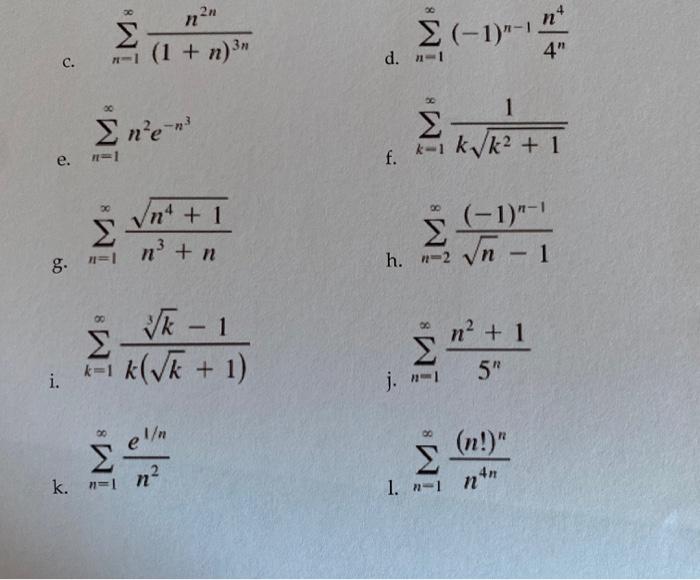 c. \sum_{n=1}^{\infty} \frac{n^{2n}}{(1 + n)^{3n}}
d. \sum_{n=1}^{\infty} (-1)^{n-1} \frac{n^4}{4^n}
e. \sum_{n=1}^{\infty} n^2 e^{-n^3}
f. \sum_{k=1}^{\infty} \frac{1}{k\sqrt{k^2 + 1}}
g. \sum_{n=1}^{\infty} \frac{\sqrt{n^4 + 1}}{n^3 + n}
h. \sum_{n=2}^{\infty} \frac{(-1)^{n-1}}{\sqrt{n} - 1}
i. \sum_{k=1}^{\infty} \frac{\sqrt[3]{k} - 1}{k(\sqrt{k} + 1)}
j. \sum_{n=1}^{\infty} \frac{n^2 + 1}{5^n}
k. \sum_{n=1}^{\infty} \frac{e^{1/n}}{n^2}
l. \sum_{n=1}^{\infty} \frac{(n!)^n}{n^{4n}}